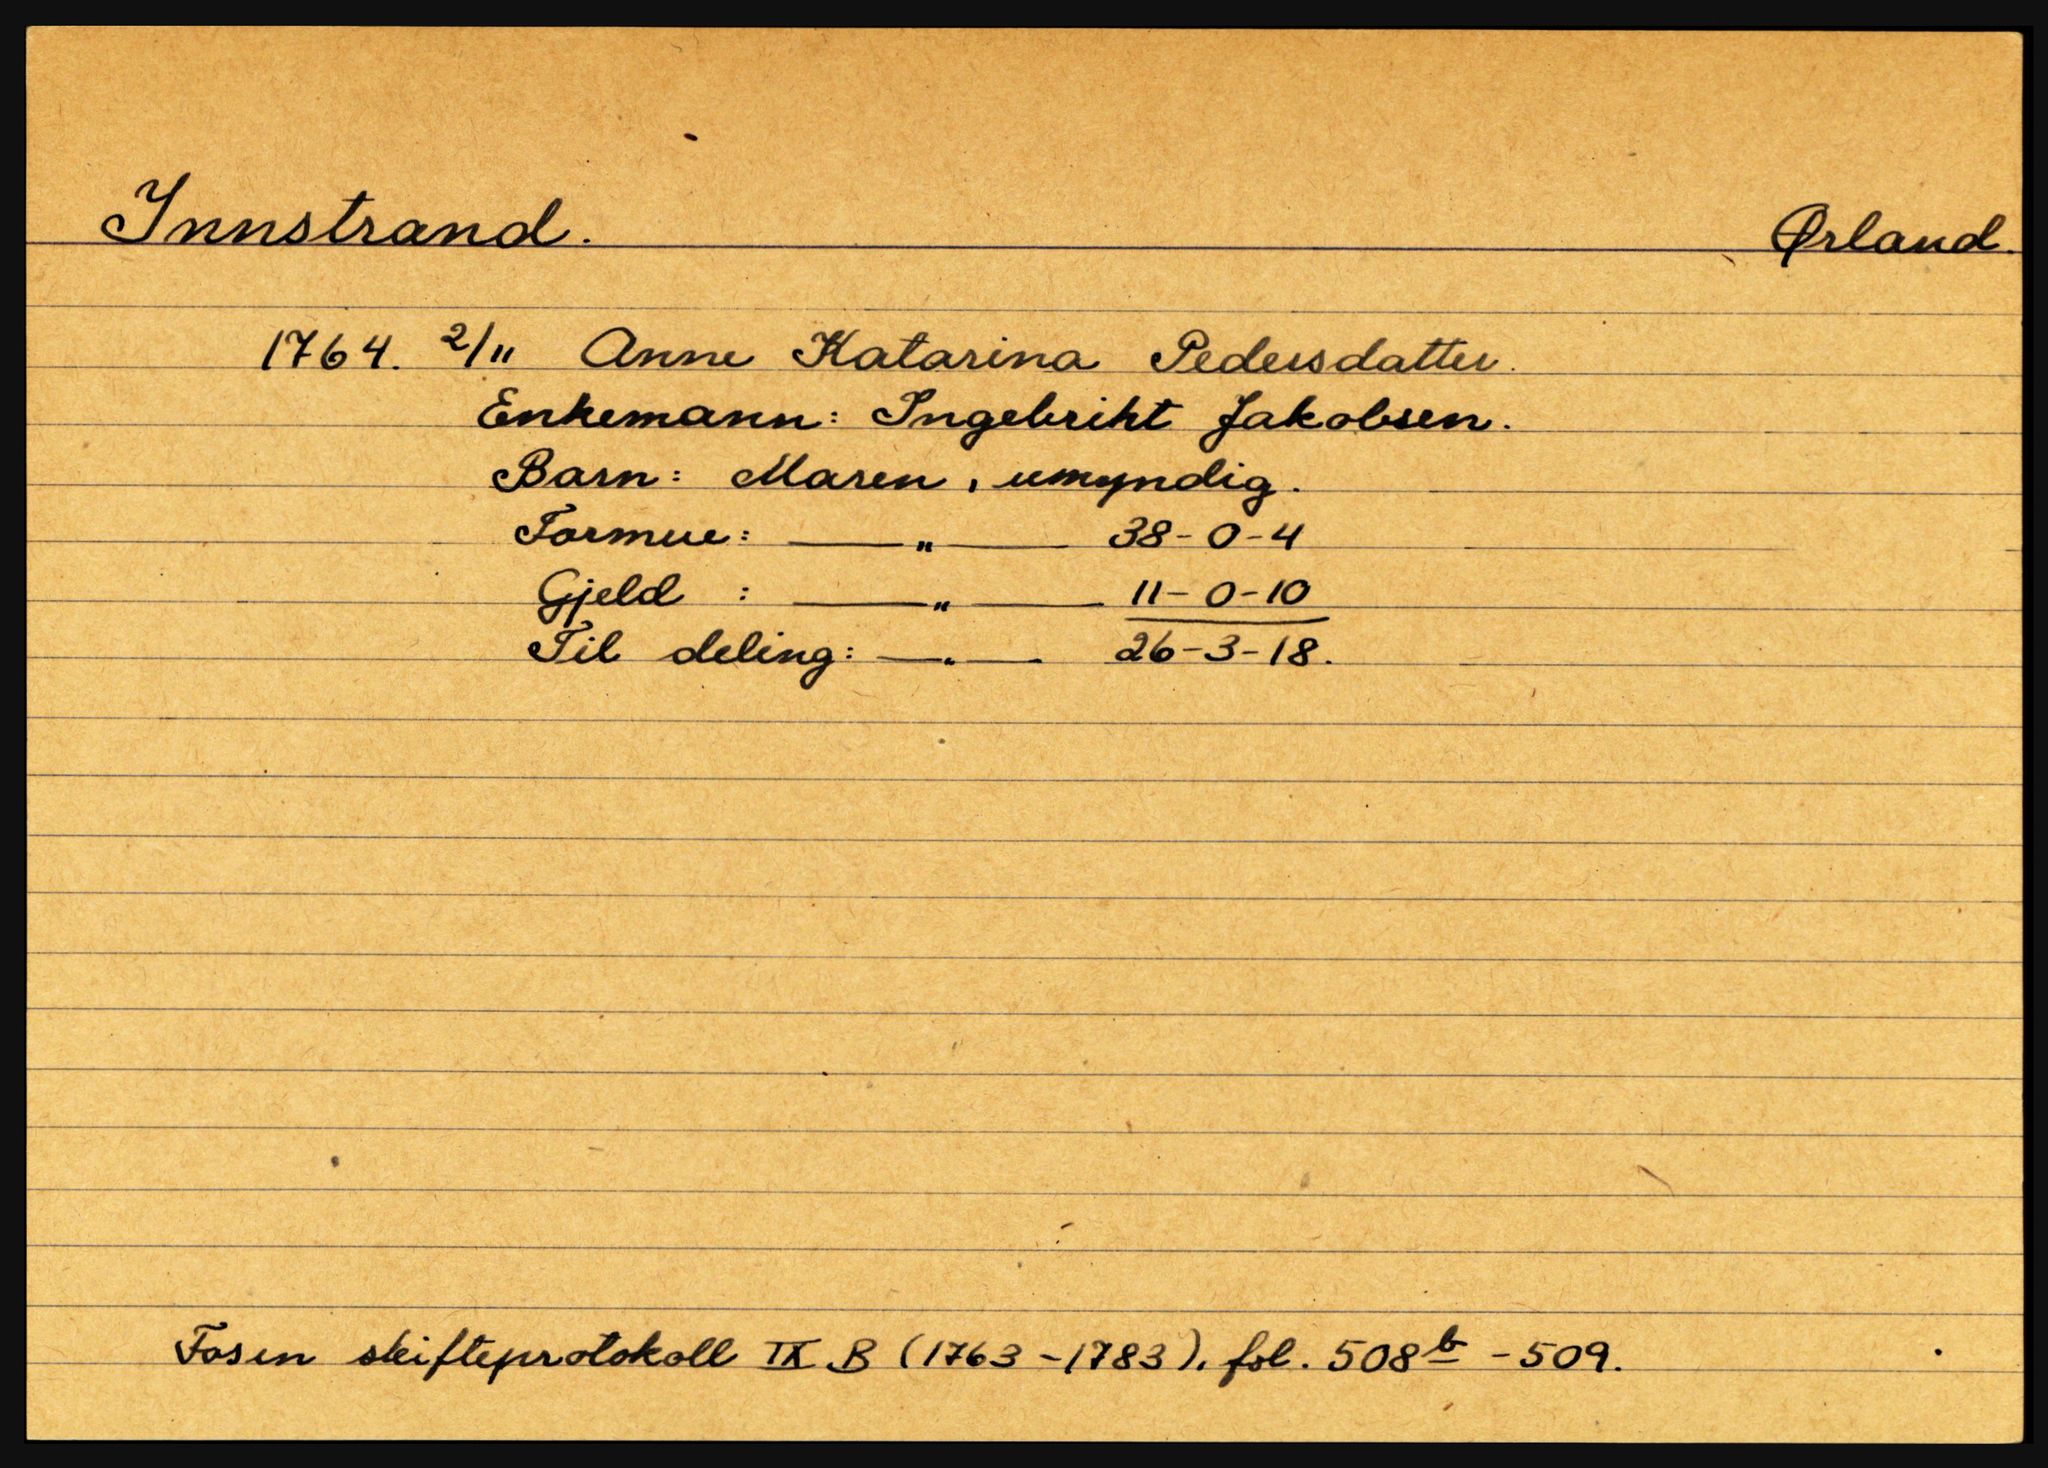 Innstrand. Ørland.
1764. 2/11 Anne Katarina Pedersdatter.
Enkemann: Ingebriht Jakobsen.
Barn: Maren, umyndig.
Formue: — " — 38-0-4
Gjeld : — " — 11-0-10
Til deling: — " — 26-3-18.
Fosen skifteprotokoll IX B (1763-1783), fol. 508b - 509.